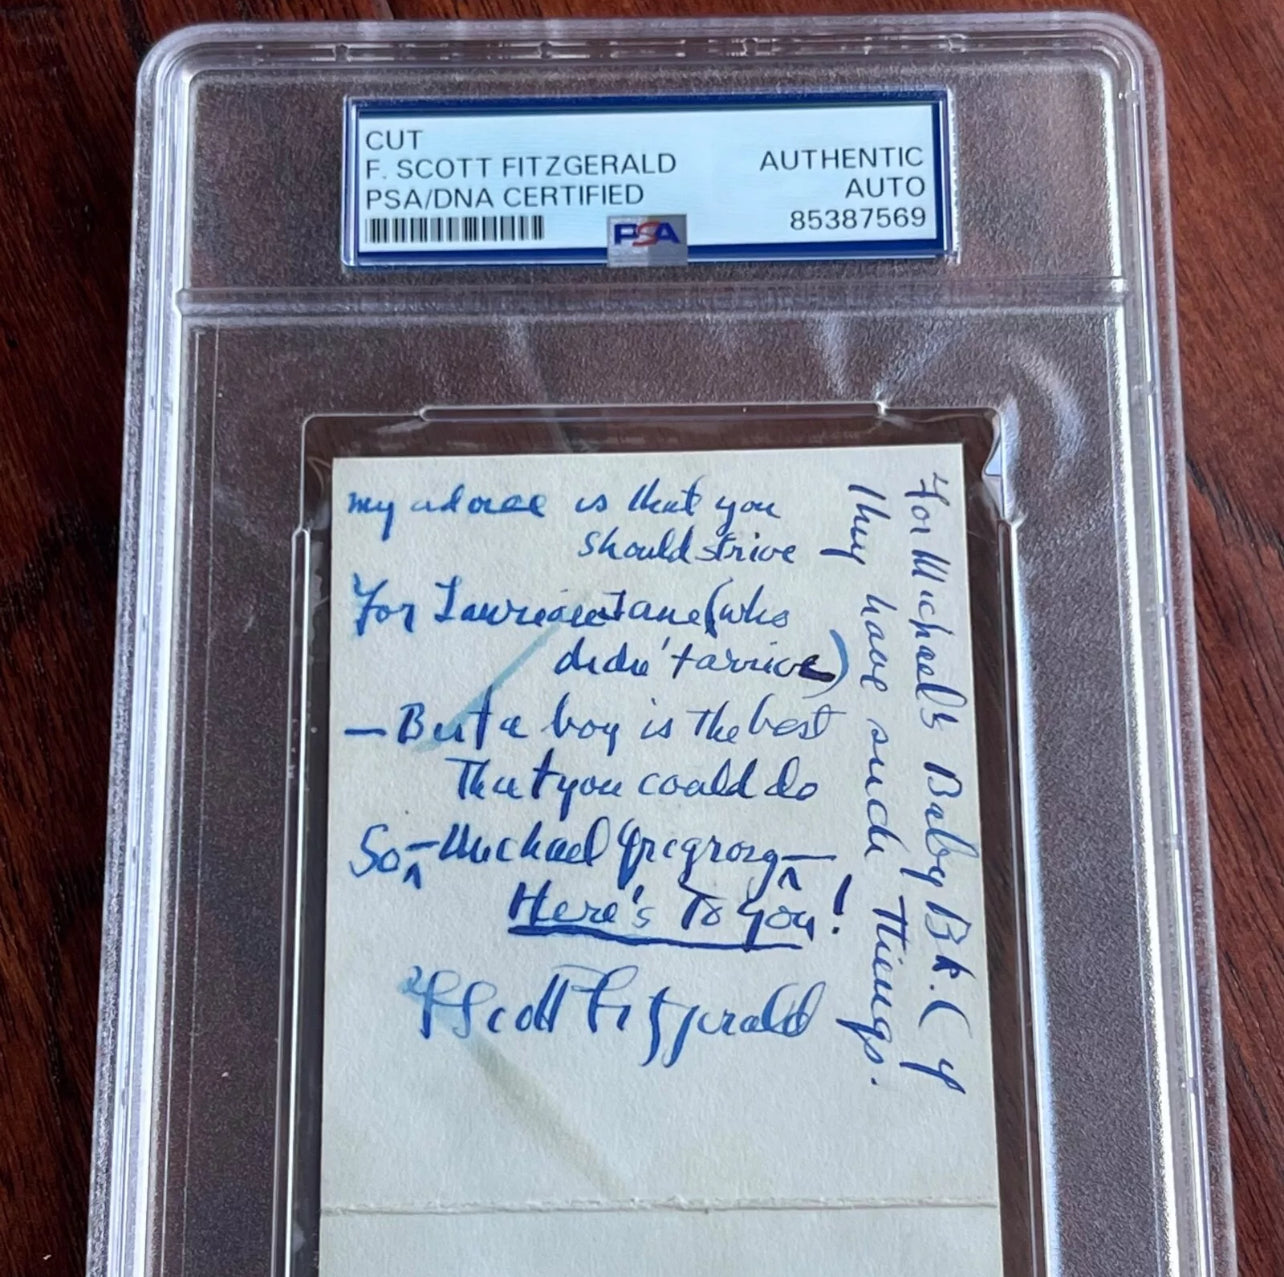 CUT
F. SCOTT FITZGERALD
PSA/DNA CERTIFIED
AUTHENTIC
AUTO
85387569
PSA
my advice is that you
should strive
For Jane (who
didn't arrive)
— But a boy is the best
That you could do
So — Michael —
Here's To you!
F Scott Fitzgerald
For Michael's Baby Bk. (if
they have such Things.